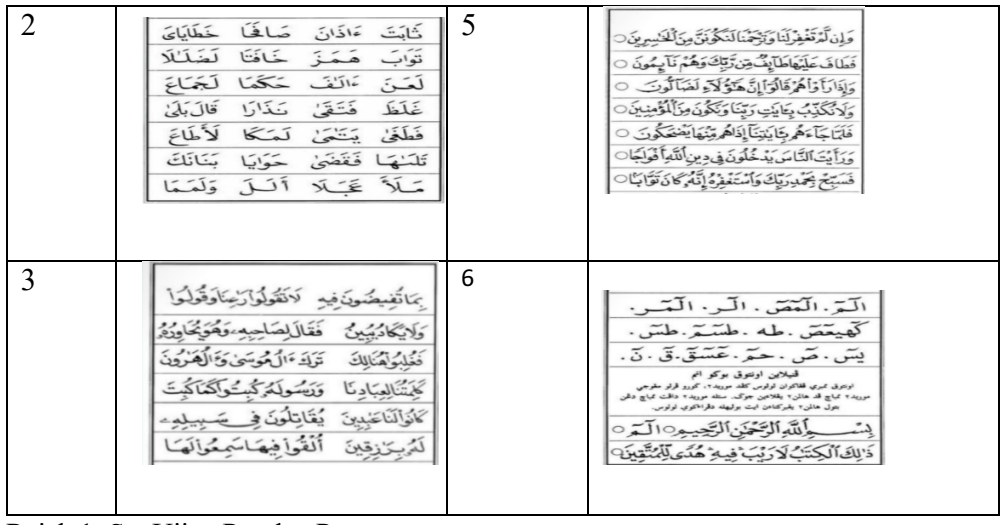 2
ثَابَتَ ءَاذَانَ صَافَحَا خَطَايَاىَ
تَوَابَ هَمَزَ خَافَتَا لَضَلَـٰلَا
لَعَنَ ءَالَفَ حَكَمَا لَجَمَاعَ
غَلَظَ فَتَقَىٰ نَذَارَا قَالَ بَلَىٰ
فَطَغَىٰ لَمَكَا لَأَطَاعَ
تَلَىٰهَا فَقَضَىٰ حَوَايَا بَنَانَكَ
مَلَأَ عَجَلَا أَلَلَ وَلَمَمَا
5
وَإِن لَّمْ تَغْفِرْ لَنَا وَتَرْحَمْنَا لَنَكُونَنَّ مِنَ ٱلْخَـٰسِرِينَ ○
فَطَافَ عَلَيْهَا طَآئِفٌ مِّن رَّبِّكَ وَهُمْ نَآئِمُونَ ○
وَإِذَا رَأَوْهُمْ قَالُوٓا۟ إِنَّ هَـٰٓؤُلَآءِ لَضَآلُّونَ ○
وَلَا نُكَذِّبَ بِـَٔايَـٰتِ رَبِّنَا وَنَكُونَ مِنَ ٱلْمُؤْمِنِينَ ○
فَلَمَّا جَآءَهُم بِـَٔايَـٰتِنَآ إِذَا هُم مِّنْهَا يَضْحَكُونَ ○
وَرَأَيْتَ ٱلنَّاسَ يَدْخُلُونَ فِى دِينِ ٱللَّهِ أَفْوَاجًا ○
فَسَبِّحْ بِحَمْدِ رَبِّكَ وَٱسْتَغْفِرْهُ إِنَّهُۥ كَانَ تَوَّابًا ○
3
بِمَا تُفِيضُونَ فِيهِ لَا تَقُولُوا۟ رَٰعِنَا وَقُولُوا۟
وَلَا يَكَادُ يُبِينُ فَقَالَ لِصَاحِبِهِۦ وَهُوَ يُحَاوِرُهُۥٓ
فَغُلِبُوا۟ هُنَالِكَ تَرَكَ ءَالُ مُوسَىٰ وَءَالُ هَٰرُونَ
كَلِمَتُنَا لِعِبَادِنَا وَرَسُولَهُۥ كُبِتُوا۟ كَمَا كُبِتَ
كَانُوا۟ لَنَا عَـٰبِدِينَ يُقَاتِلُونَ فِى سَبِيلِهِۦ
لَهُۥ بِرَٰزِقِينَ أُلْقُوا۟ فِيهَا سَمِعُوا۟ لَهَا
6
الٓمٓ . الٓمٓصٓ . الٓر . الٓمٓر .
كٓهيعٓصٓ . طه . طسٓمٓ . طسٓ .
يسٓ . صٓ . حمٓ . عٓسٓقٓ . قٓ . نٓ .
ڤنيلاين اونتوق بوكو انم
بِسْمِ ٱللَّهِ ٱلرَّحْمَـٰنِ ٱلرَّحِيمِ ○ الٓمٓ ○
ذَٰلِكَ ٱلْكِتَـٰبُ لَا رَيْبَ ۛ فِيهِ ۛ هُدًى لِّلْمُتَّقِينَ ○
Rajah 1: Set Ujian Bacaan